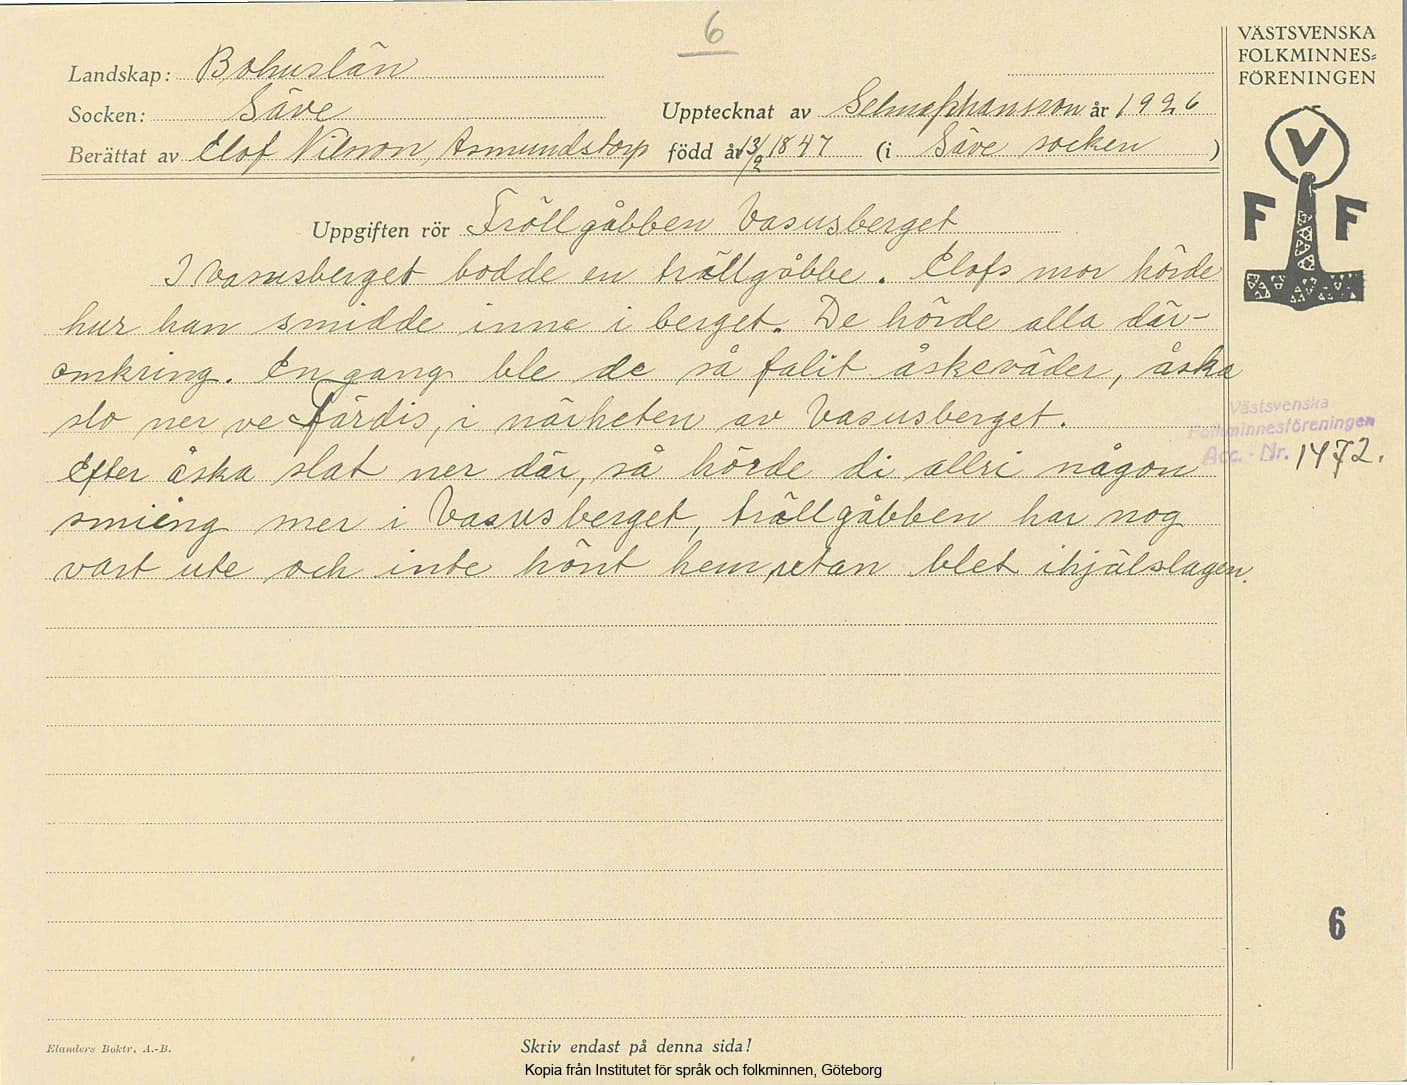 6
VÄSTSVENSKA
FOLKMINNES=
FÖRENINGEN
Landskap: Bohuslän
Socken: Säve
Upptecknat av Selma Johansson år 1926
Berättat av Elof Nilsson, Asmundstorp född år 13/2 1847 (i Säve socken )
V
F F
Uppgiften rör Tröllgåbben Vasusberget
I Vasusberget bodde en trällgåbbe. Elofs mor hörde
hur han smidde inne i berget. De hörde alla där-
omkring. En gang ble de så falit åskeväder, åska
slo ner ve Färdis, i närheten av Vasusberget.
Västsvenska
Folkminnesföreningen
Acc.-Nr. 1472.
Efter åska slat ner där, så hörde di allri någon
smieng mer i Vasusberget, trällgåbben har nog
vart ute och inte hönt hem, utan blet ihjälslagen.
6
Elanders Boktr. A.-B.
Skriv endast på denna sida!
Kopia från Institutet för språk och folkminnen, Göteborg